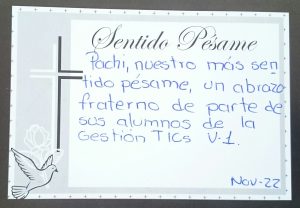 Sentido Pésame
Pachi, nuestro más sen
tido pésame, un abrazo
fraterno de parte de
sus alumnos de la
Gestión TICs V-1.
Nov-22